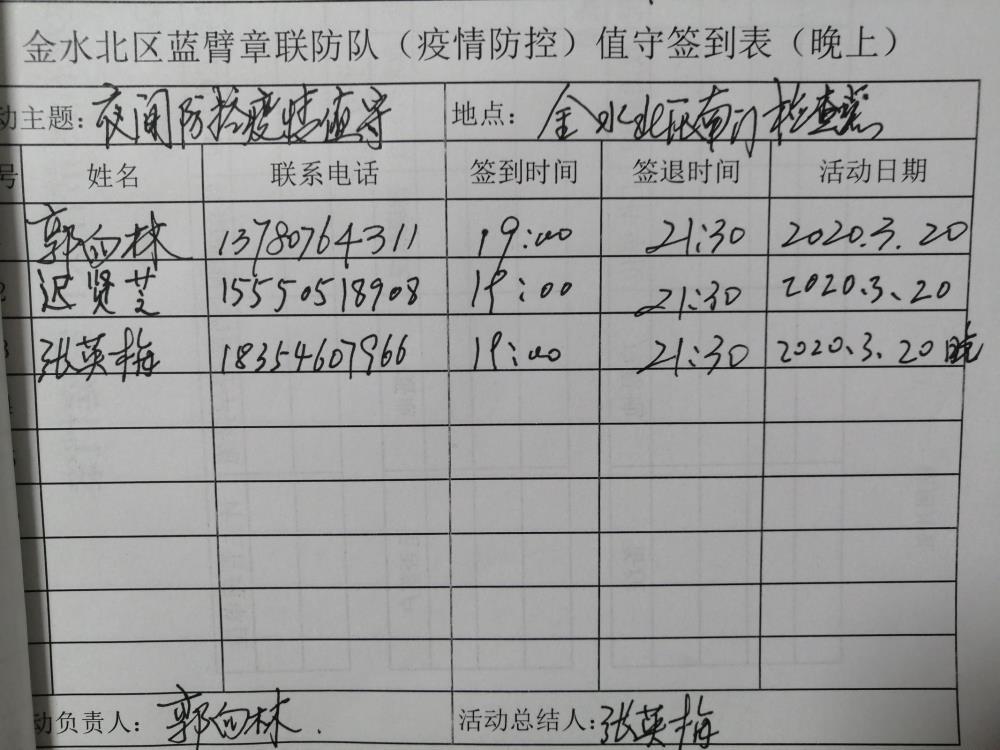 金水北区蓝臂章联防队（疫情防控）值守签到表（晚上）
动主题：夜间防控疫情值守 地点：金水北区南门检查岗
号 姓名 联系电话 签到时间 签退时间 活动日期
郭向林 13780764311 19:00 21:30 2020.3.20
2 迟贤芝 15550518908 19:00 21:30 2020.3.20
3 张英梅 18354607966 19:00 21:30 2020.3.20晚
动负责人：郭向林. 活动总结人：张英梅